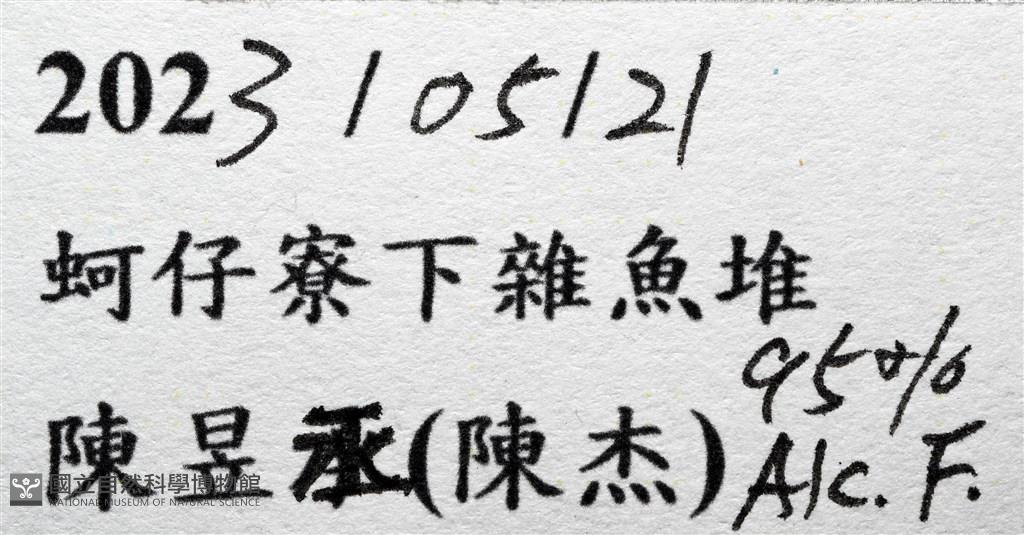 2023/05/21
蚵仔寮下雜魚堆
95%
陳昱承(陳杰) Alc. F.
國立自然科學博物館
NATIONAL MUSEUM OF NATURAL SCIENCE